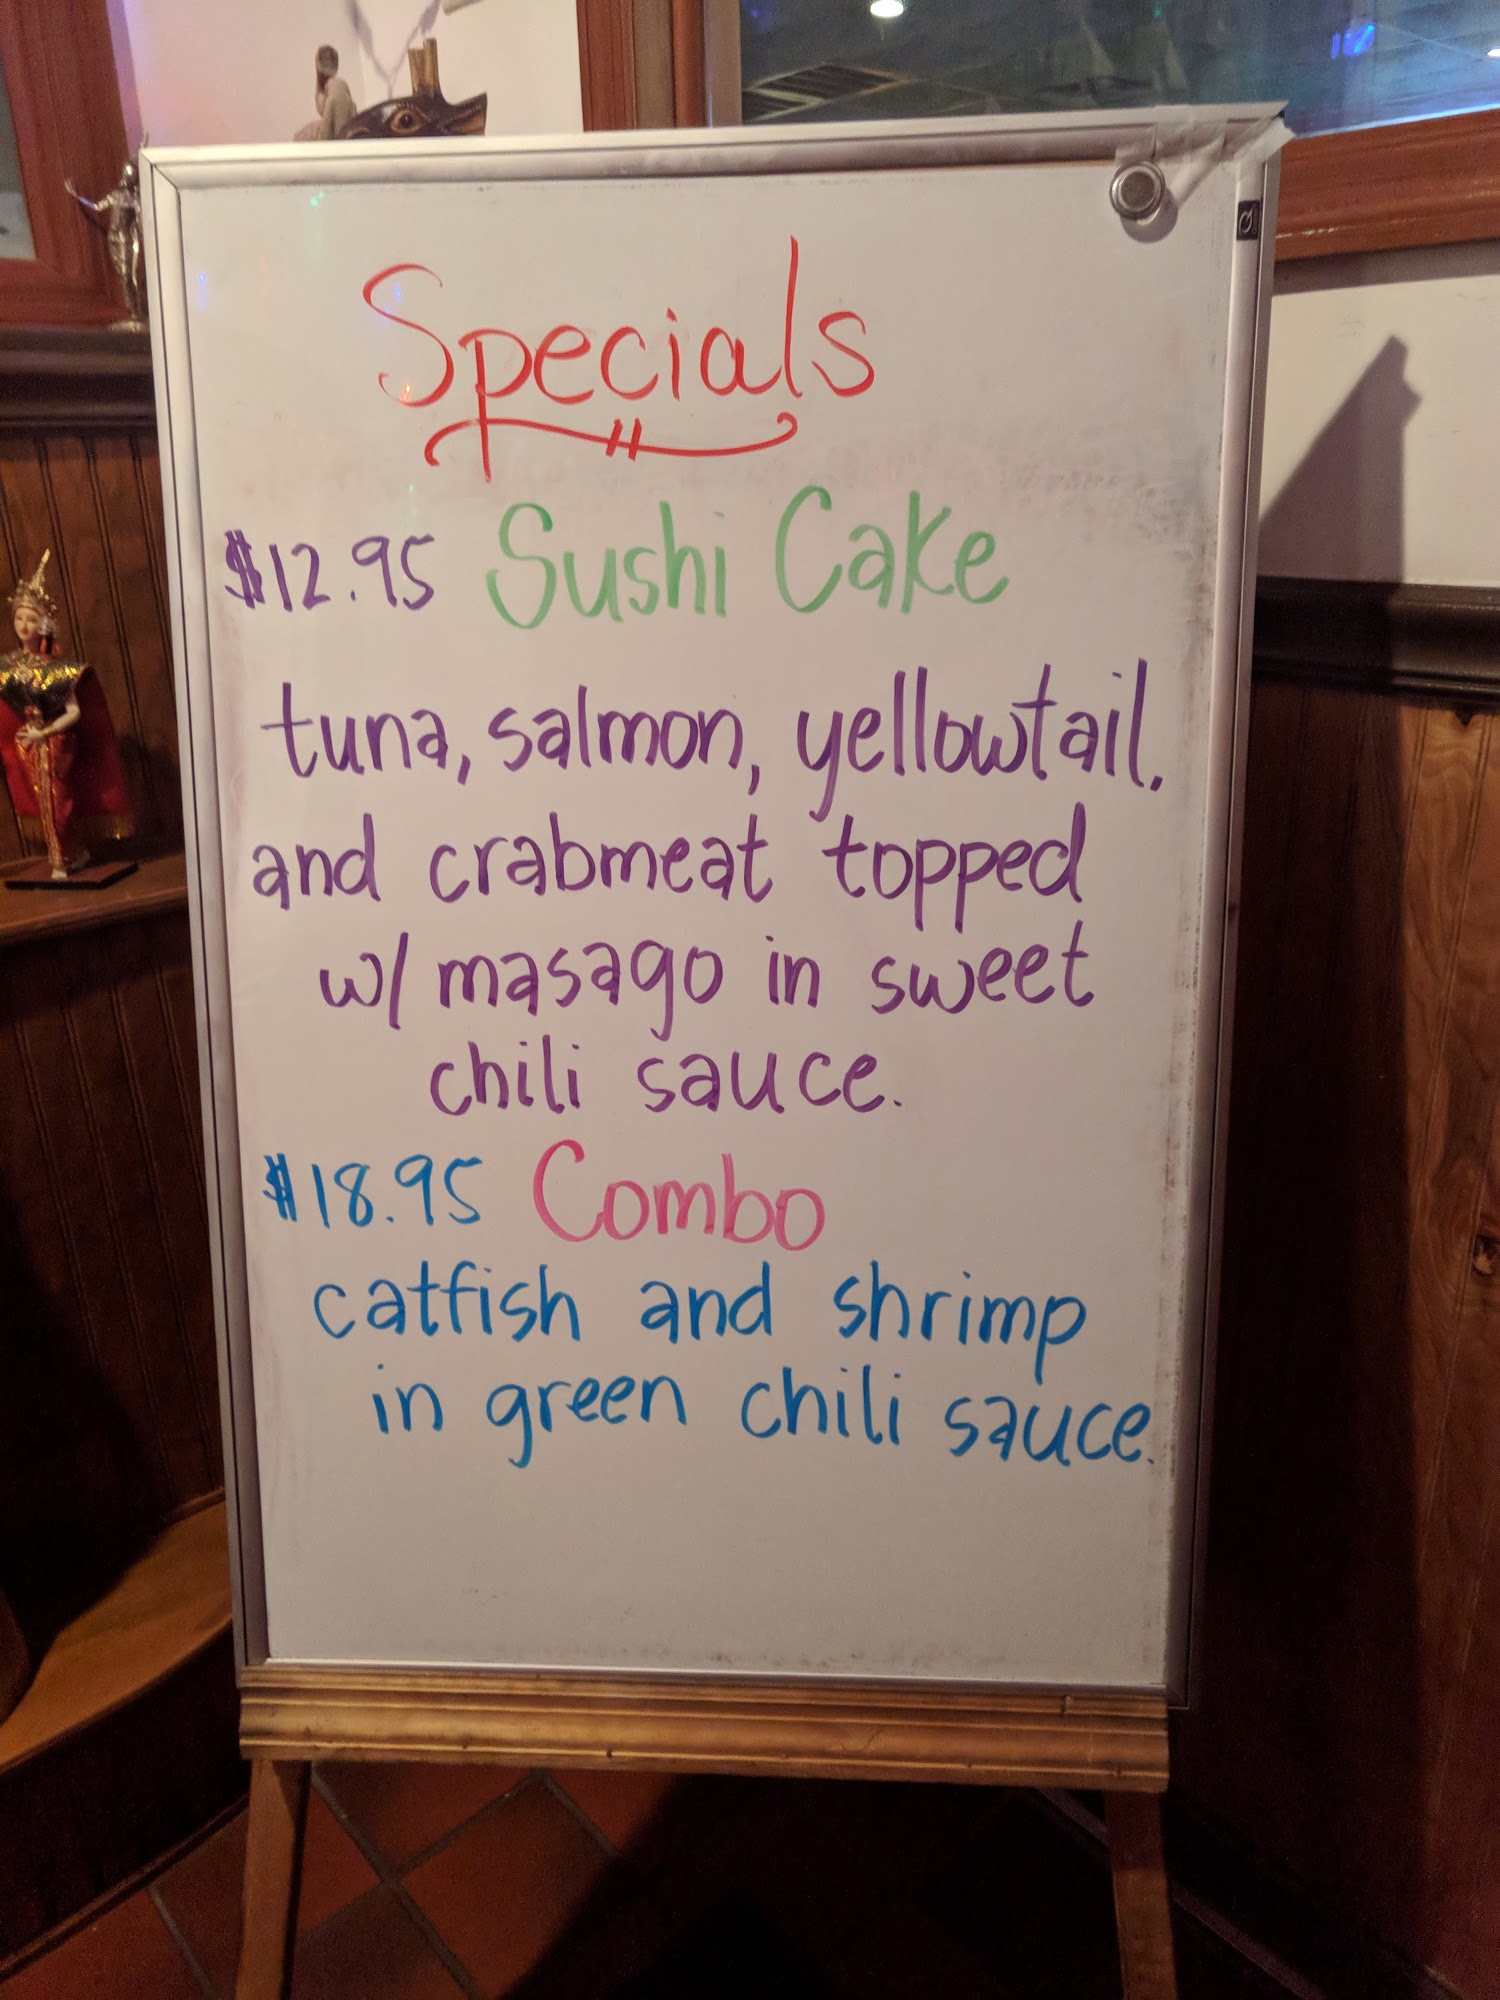 Specials
$12.95 Sushi Cake
tuna, salmon, yellowtail,
and crabmeat topped
w/ masago in sweet
chili sauce.
$18.95 Combo
catfish and shrimp
in green chili sauce.